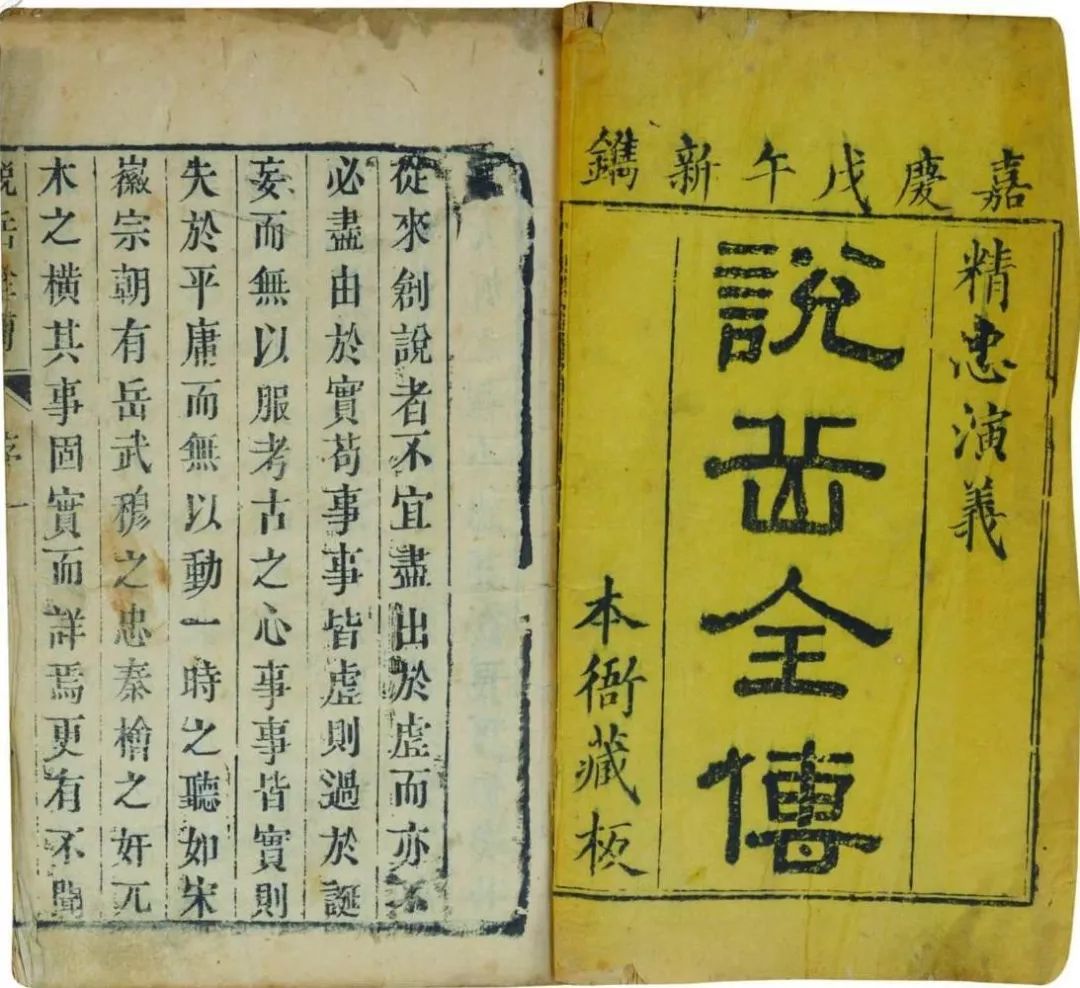 嘉慶戊午新鐫
精忠演義
說岳全傳
本衙藏板
從來創說者不宜盡出於虛而亦不
必盡由於實苟事事皆虛則過於誕
妄而無以服考古之心事事皆實則
失於平庸而無以動一時之聽如宋
徽宗朝有岳武穆之忠秦檜之奸兀
木之橫其事固實而詳焉更有不聞
說岳全傳 序 一